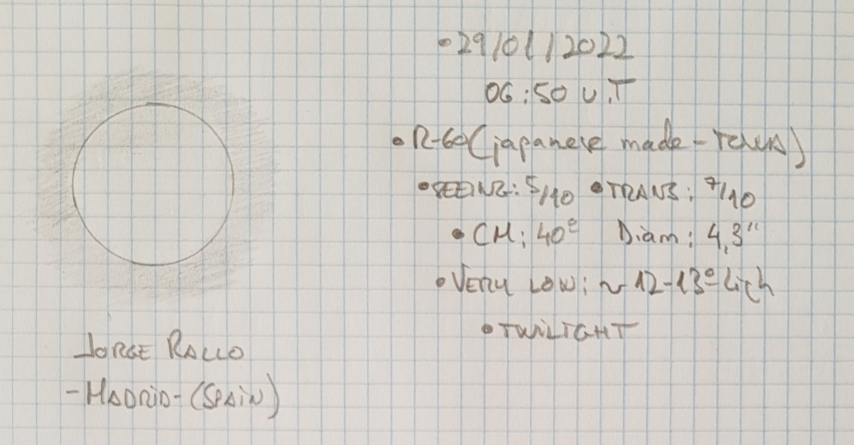 •29/01/2022
06:50 U.T
•R-60(japanese made-TOWA)
•SEEING: 5/10 •TRANS: 7/10
•CM: 40º Diam: 4,3"
•VERY LOW: ~12-13º High
•TWILIGHT
JORGE RALLO
-MADRID-(SPAIN)